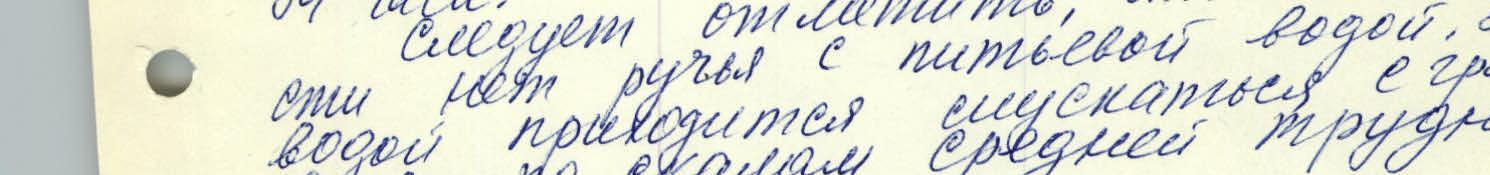 Следует отметить,
сти нет ручья с питьевой водой.
водой приходится спускаться с гр
по скалам средней трудн